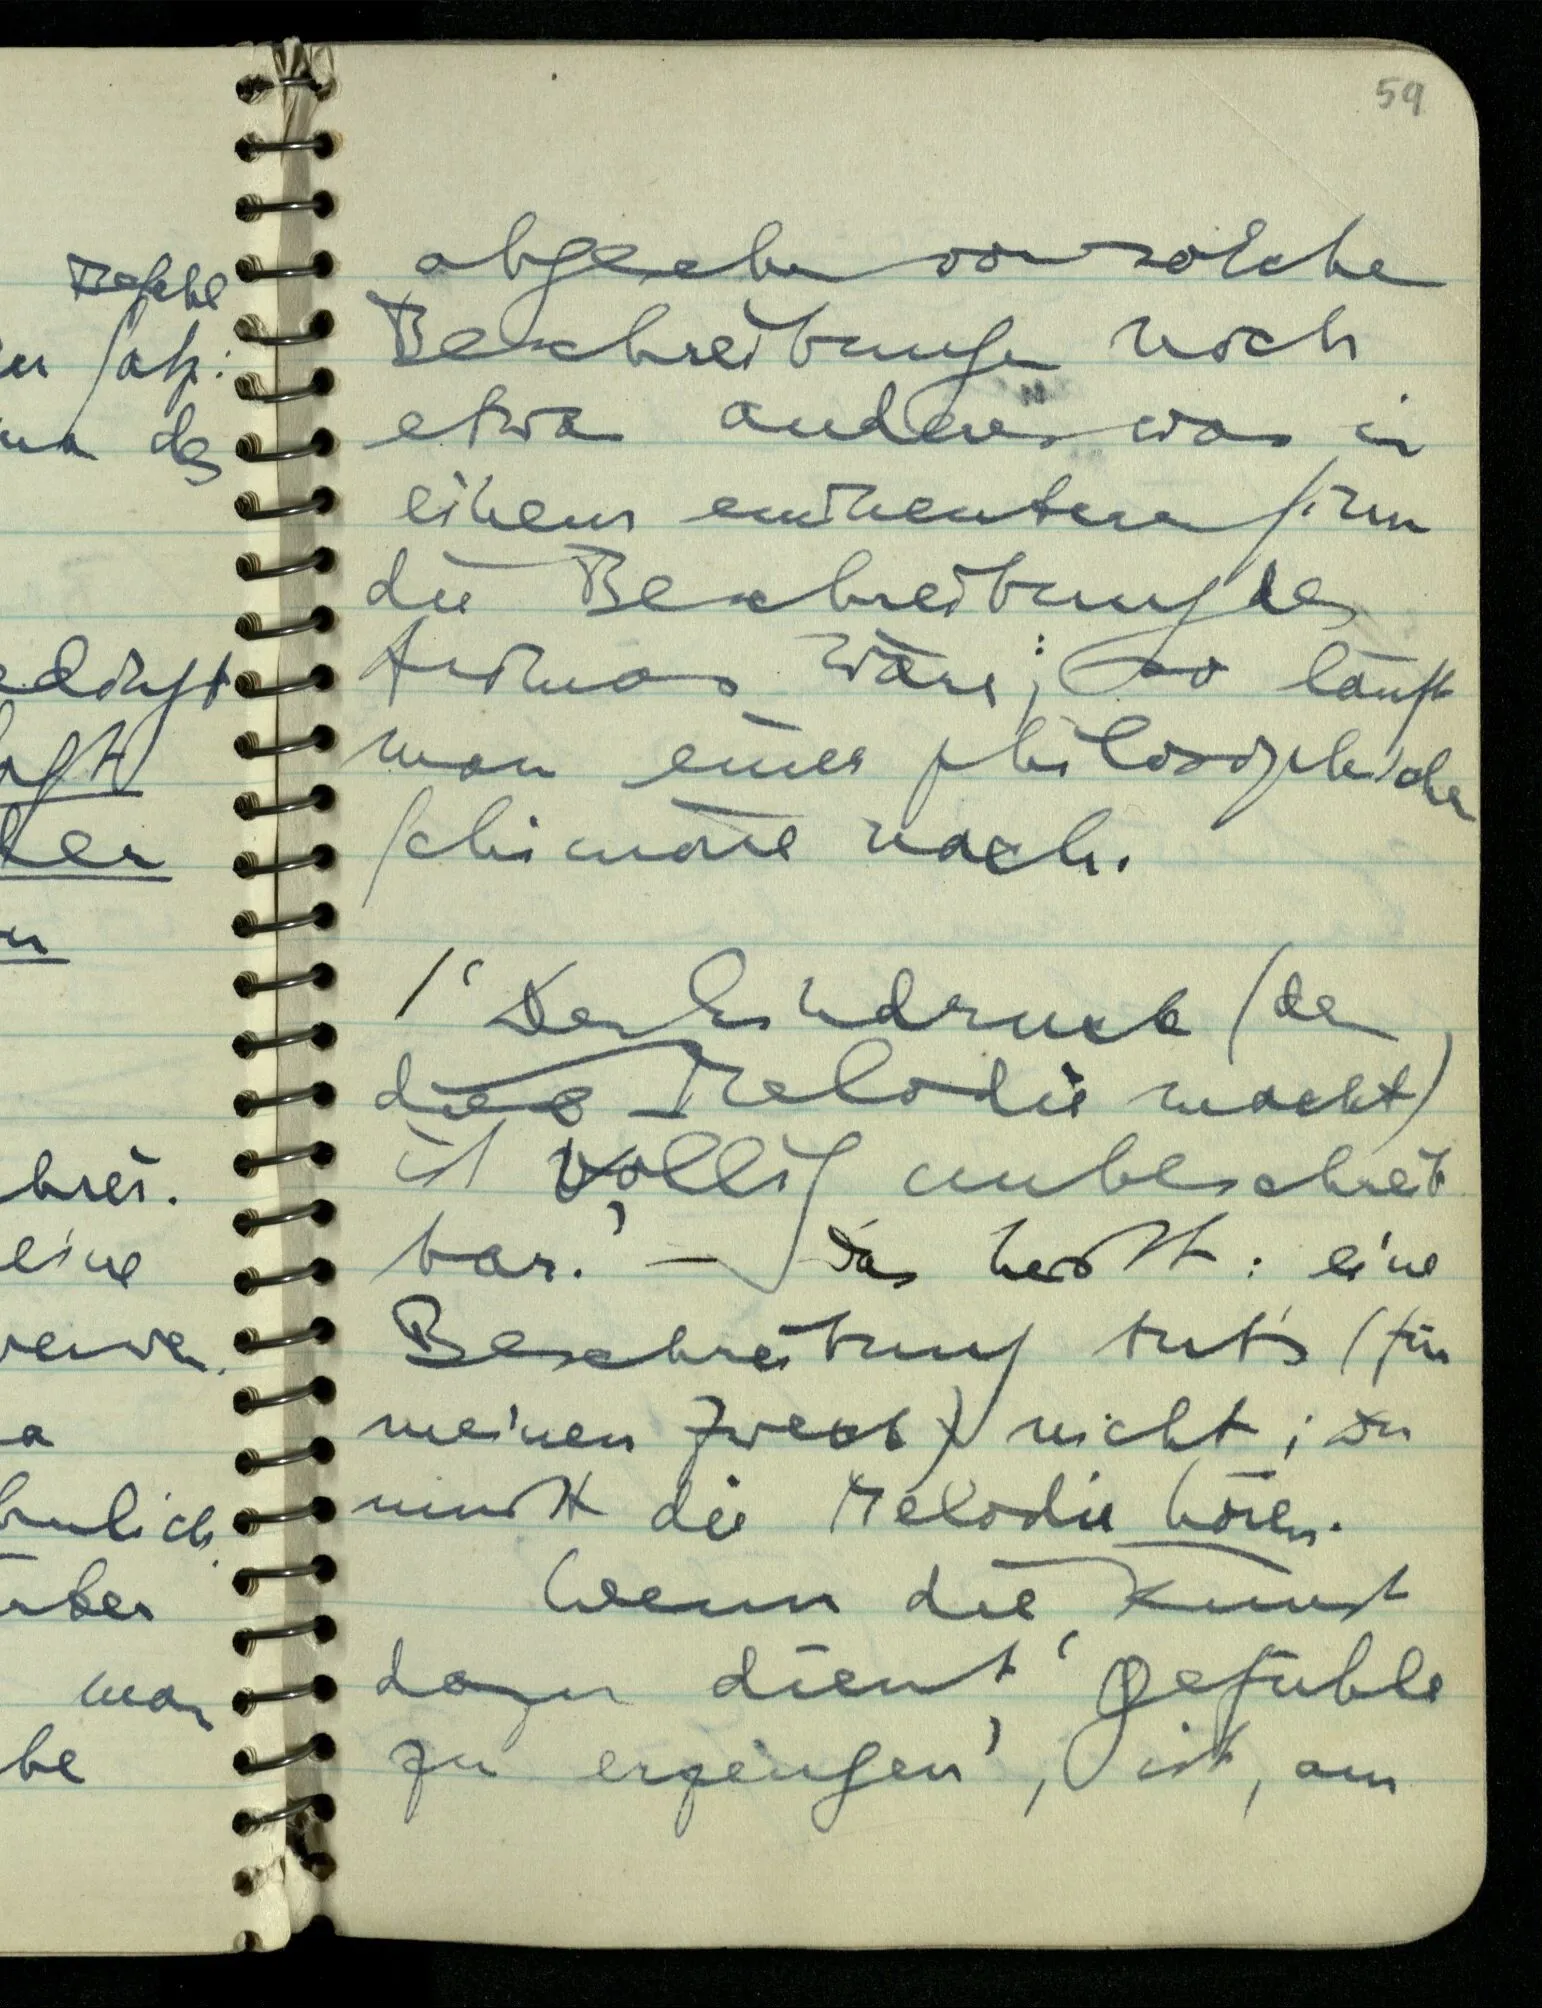 59
abgesehen von solchen
Beschreibungen noch
etwas anderes was in
einem eminenten Sinn
die Beschreibung des
Aromas wäre; so läuft
man einer philosophischen
Schimäre nach.
/ ‘Der Eindruck (den
diese Melodie macht)
ist völlig unbeschreib
bar.’ – Das heißt: eine
Beschreibung tut's (für
meinen Zweck) nicht; Du
mußt die Melodie hören.
Wenn die Kunst
dazu dient, ‘Gefühle
zu erzeugen’, ist, am
Befehl
Satz:
des
eine
man